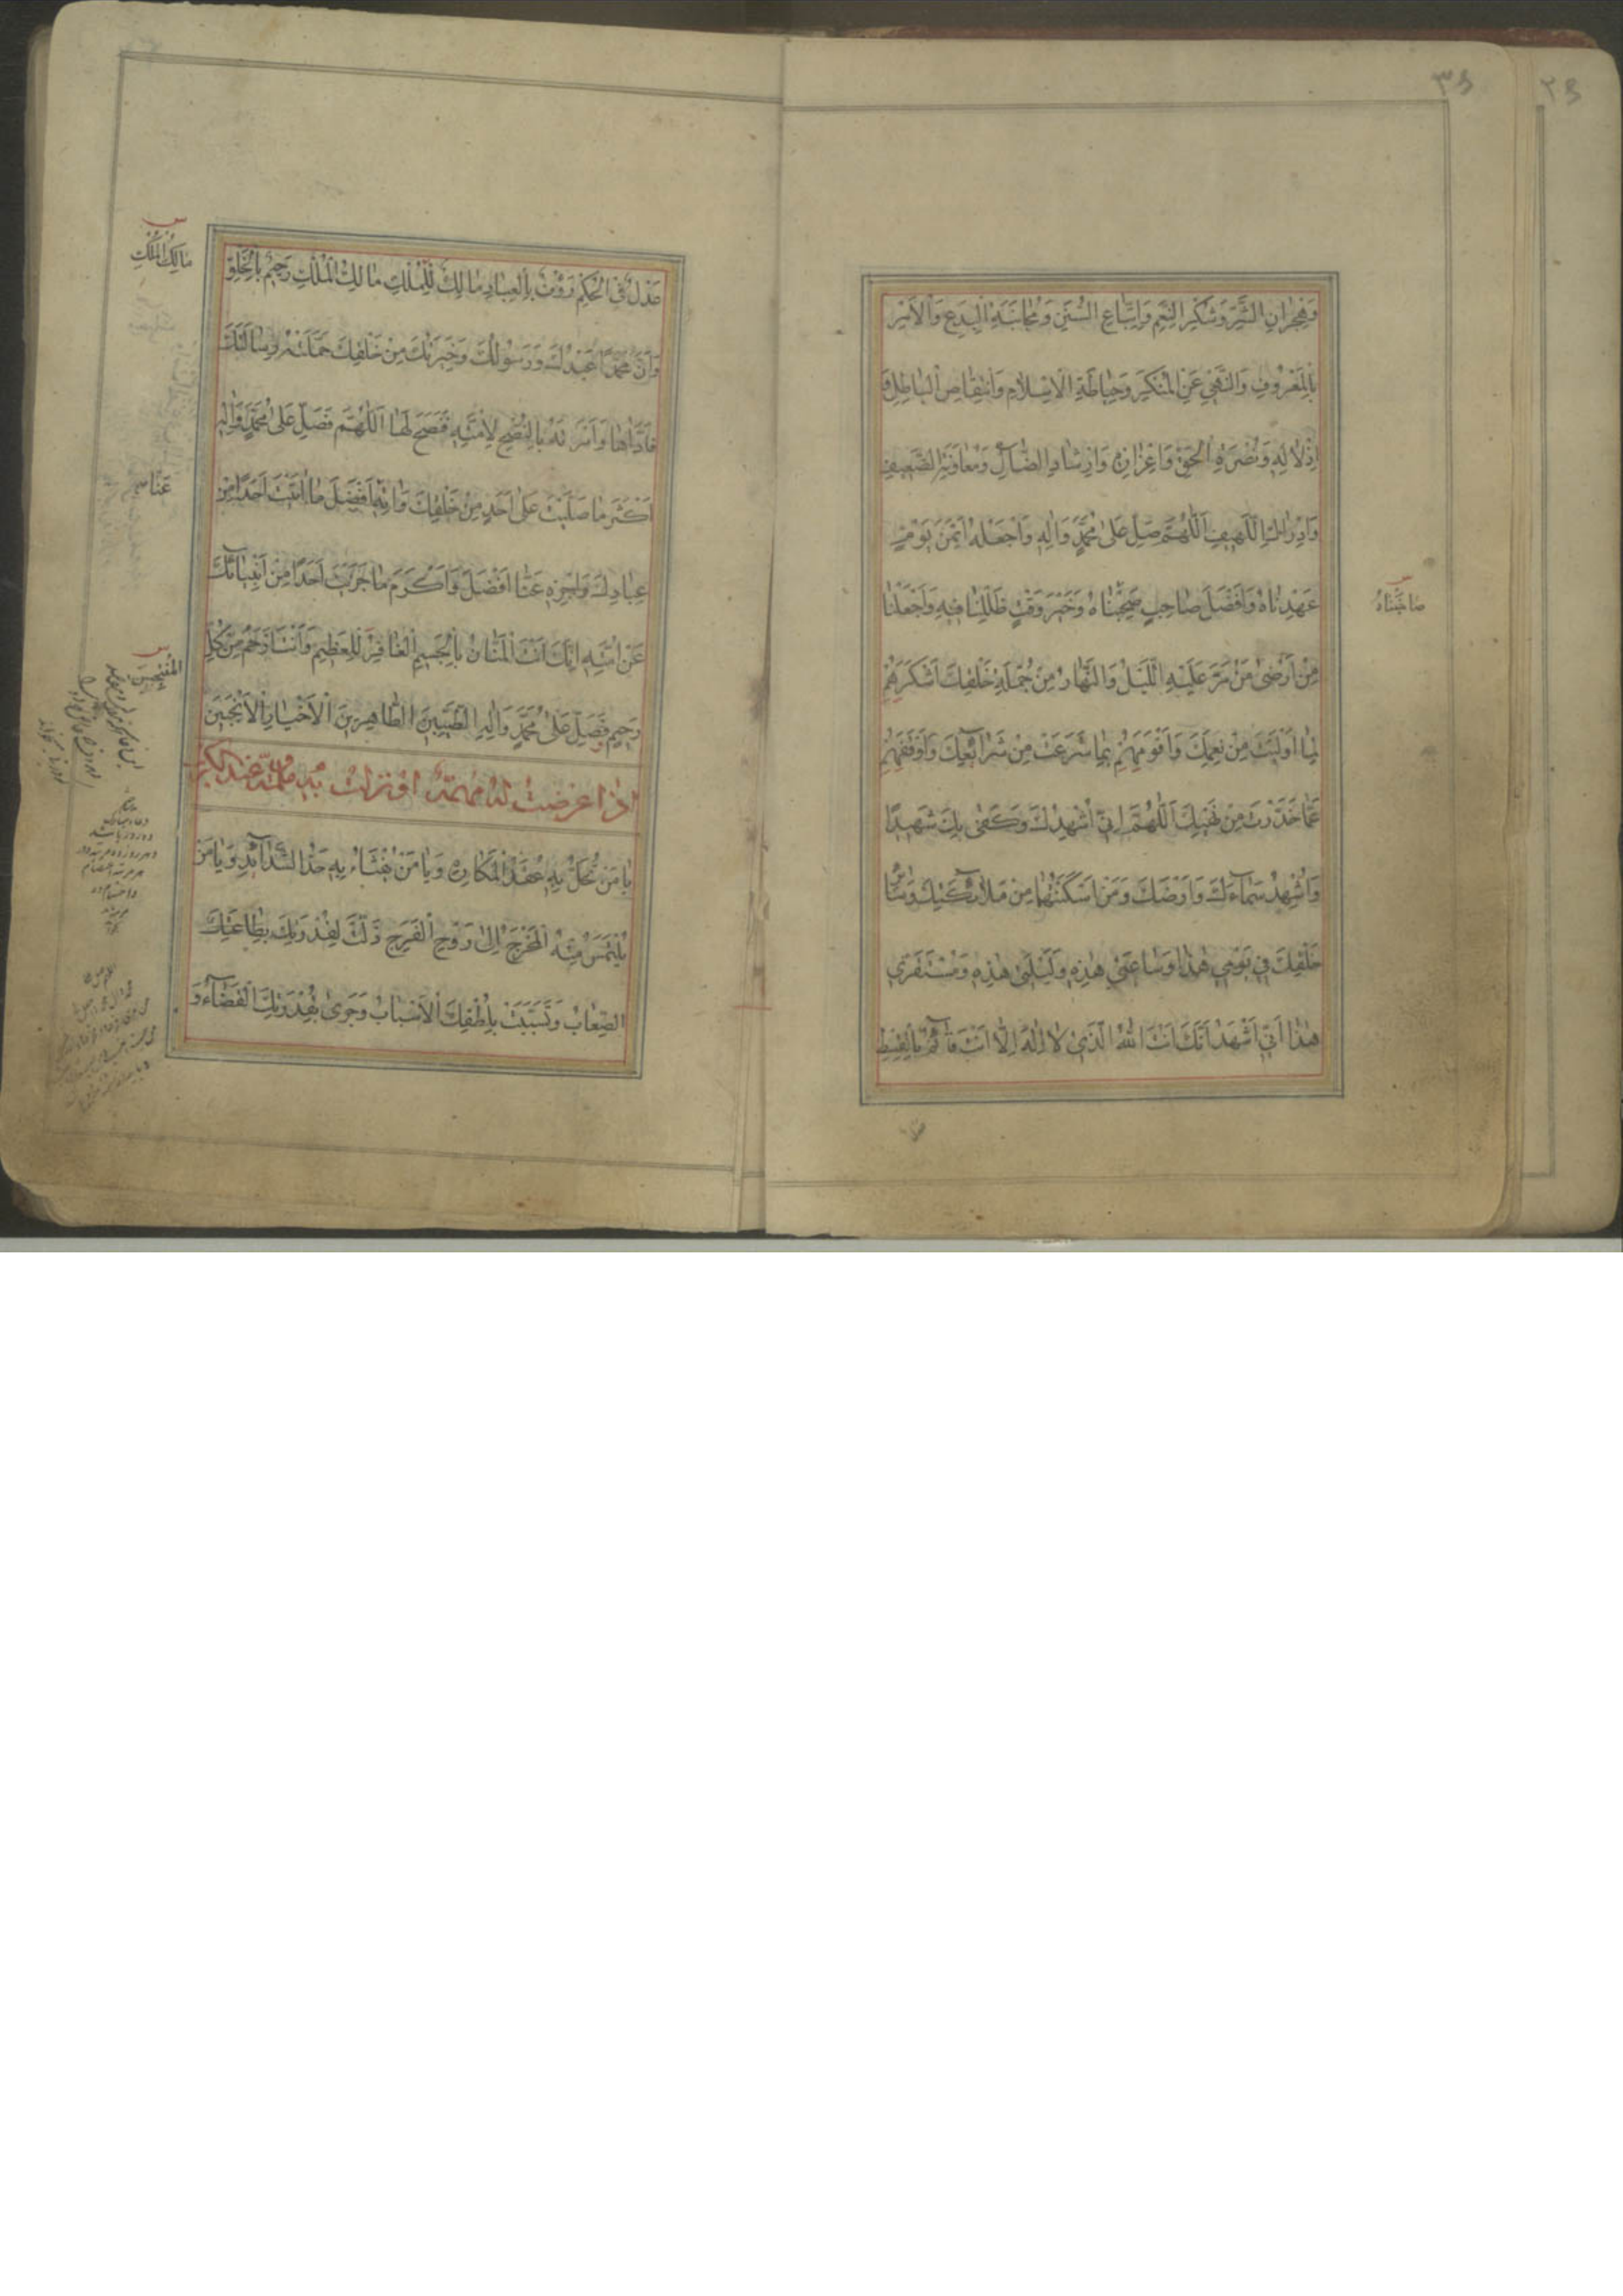 ٣٥
٢٥
وَهِجْرَانِ الشَّرِّ وَشُكْرِ النِّعَمِ وَاتِّبَاعِ السُّنَنِ وَمُجَانَبَةِ الْبِدَعِ وَالْأَمْرِ
بِالْمَعْرُوفِ وَالنَّهْيِ عَنِ الْمُنْكَرِ وَحِيَاطَةِ الْإِسْلَامِ وَانْتِقَاصِ الْبَاطِلِ وَ
إِذْلَالِهِ وَنُصْرَةِ الْحَقِّ وَإِعْزَازِهِ وَإِرْشَادِ الضَّالِّ وَمُعَاوَنَةِ الضَّعِيفِ
وَإِدْرَاكِ اللَّهِيفِ اللَّهُمَّ صَلِّ عَلَى مُحَمَّدٍ وَآلِهِ وَاجْعَلْهُ أَيْمَنَ يَوْمٍ
عَهِدْنَاهُ وَأَفْضَلَ صَاحِبٍ صَحِبْنَاهُ وَخَيْرَ وَقْتٍ ظَلِلْنَا فِيهِ وَاجْعَلْنَا
مِنْ أَرْضَى مَنْ مَرَّ عَلَيْهِ اللَّيْلُ وَالنَّهَارُ مِنْ جُمْلَةِ خَلْقِكَ أَشْكَرَهُمْ
لِمَا أَوْلَيْتَ مِنْ نِعَمِكَ وَأَقْوَمَهُمْ بِمَا شَرَعْتَ مِنْ شَرَائِعِكَ وَأَوْقَفَهُمْ
عَمَّا حَذَّرْتَ مِنْ نَهْيِكَ اللَّهُمَّ إِنِّي أُشْهِدُكَ وَكَفَى بِكَ شَهِيدًا
وَأُشْهِدُ سَمَاءَكَ وَأَرْضَكَ وَمَنْ أَسْكَنْتَهُمَا مِنْ مَلَائِكَتِكَ وَسَائِرِ
خَلْقِكَ فِي يَوْمِي هَذَا وَسَاعَتِي هَذِهِ وَلَيْلَتِي هَذِهِ وَمُسْتَقَرِّي
هَذَا أَنِّي أَشْهَدُ أَنَّكَ أَنْتَ اللَّهُ الَّذِي لَا إِلَهَ إِلَّا أَنْتَ قَائِمٌ بِالْقِسْطِ
عَدْلٌ فِي الْحُكْمِ رَؤُفٌ بِالْعِبَادِ مَالِكٌ لِلْمُلْكِ مَالِكُ الْمُلْكِ رَحِيمٌ بِالْخَلْقِ
وَأَنَّ مُحَمَّدًا عَبْدُكَ وَرَسُولُكَ وَخِيَرَتُكَ مِنْ خَلْقِكَ حَمَّلْتَهُ رِسَالَتَكَ
فَأَدَّاهَا وَأَمَرْتَهُ بِالنُّصْحِ لِأُمَّتِهِ فَنَصَحَ لَهَا اللَّهُمَّ فَصَلِّ عَلَى مُحَمَّدٍ وَآلِهِ
أَكْثَرَ مَا صَلَّيْتَ عَلَى أَحَدٍ مِنْ خَلْقِكَ وَآتِهِ أَفْضَلَ مَا آتَيْتَ أَحَدًا مِنْ
عِبَادِكَ وَاجْزِهِ عَنَّا أَفْضَلَ وَأَكْرَمَ مَا جَزَيْتَ أَحَدًا مِنْ أَنْبِيَائِكَ
عَنْ أُمَّتِهِ إِنَّكَ أَنْتَ الْمَنَّانُ بِالْجَسِيمِ الْغَافِرُ لِلْعَظِيمِ وَأَنْتَ أَرْحَمُ مِنْ كُلِّ
رَحِيمٍ فَصَلِّ عَلَى مُحَمَّدٍ وَآلِهِ الطَّيِّبِينَ الطَّاهِرِينَ الْأَخْيَارِ الْأَنْجَبِينَ
إِذَا عَرَضَتْ لَهُ مُهِمَّةٌ أَوْ نَزَلَتْ بِهِ مُلِمَّةٌ وَعِنْدَ الْكَرْبِ
يَا مَنْ تُحَلُّ بِهِ عُقَدُ الْمَكَارِهِ وَيَا مَنْ يُفْثَأُ بِهِ حَدُّ الشَّدَائِدِ وَيَا مَنْ
يُلْتَمَسُ مِنْهُ الْمَخْرَجُ إِلَى رَوْحِ الْفَرَجِ ذَلَّتْ لِقُدْرَتِكَ بِطَاعَتِكَ
الصِّعَابُ وَتَسَبَّبَتْ بِلُطْفِكَ الْأَسْبَابُ وَجَرَى بِقُدْرَتِكَ الْقَضَاءُ وَ
صَاحَبَنَاهُ
مَالِكُ الْمُلْكِ
عَنَّا